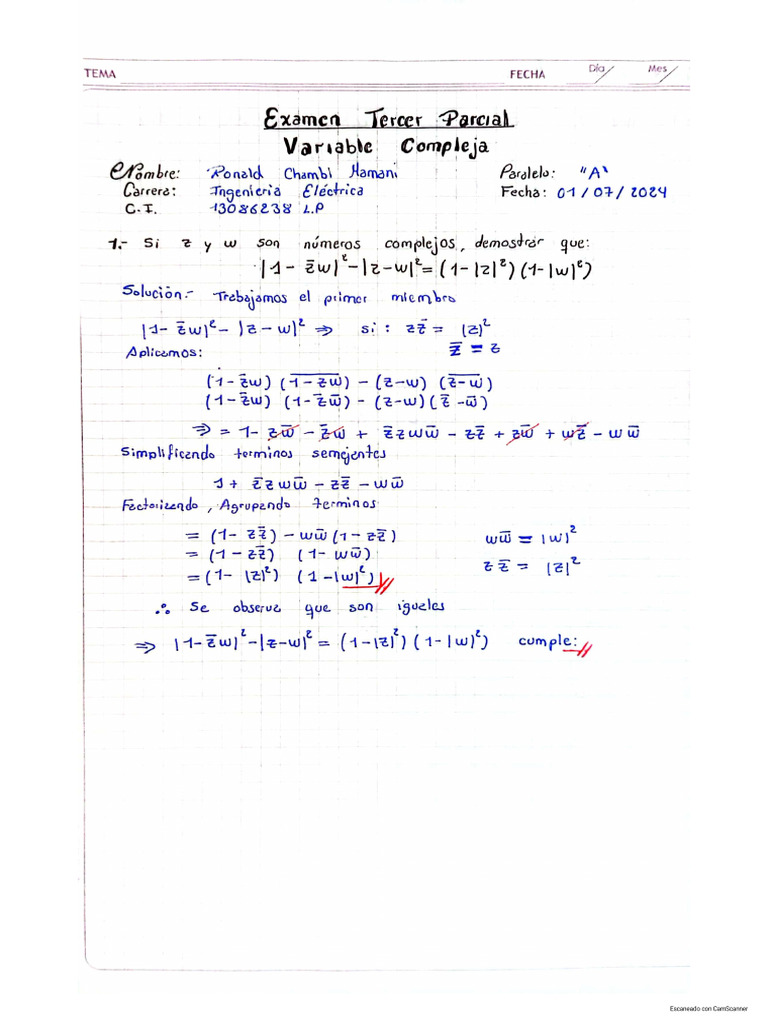 TEMA FECHA Día Mes
Examen Tercer Parcial
Variable Compleja
Nombre: Ronald Chambi Mamani Paralelo: "A"
Carrera: Ingenieria Eléctrica Fecha: 01/07/2024
C.I. 13086238 L.P
1.- Si z y w son números complejos, demostrar que:
|1 - z̄w|² - |z-w|² = (1-|z|²)(1-|w|²)
Solución.- Trabajamos el primer miembro
|1- z̄w|² - |z - w|² ⇒ si: zz̄ = |z|²
z̿ = z
Aplicamos:
(1-z̄w) (\overline{1-z̄w}) - (z-w) (\overline{z-w})
(1-z̄w) (1-z̄w̄) - (z-w)(z̄-w̄)
⇒ = 1- zw̄ - z̄w̄ + z̄zww̄ - zz̄ + zw̄ + wz̄ - ww̄
Simplificando terminos semejantes
1 + z̄zww̄ - zz̄ - ww̄
Factorizando, Agrupando terminos
= (1- zz̄) - ww̄(1- zz̄) ww̄ = |w|²
= (1 - zz̄) (1- ww̄) zz̄ = |z|²
= (1- |z|²) (1-|w|²)
∴ Se observa que son iguales
⇒ |1-z̄w|² - |z-w|² = (1-|z|²)(1-|w|²) cumple:
Escaneado con CamScanner